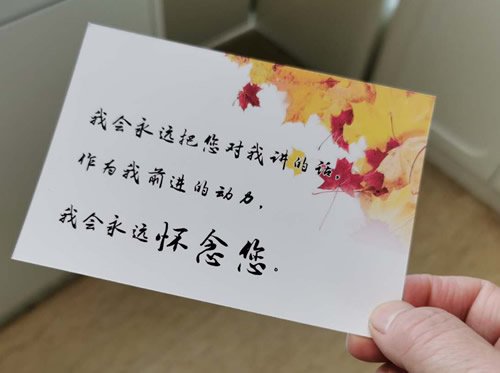 我会永远把您对我讲的话，
作为我前进的动力，
我会永远怀念您。